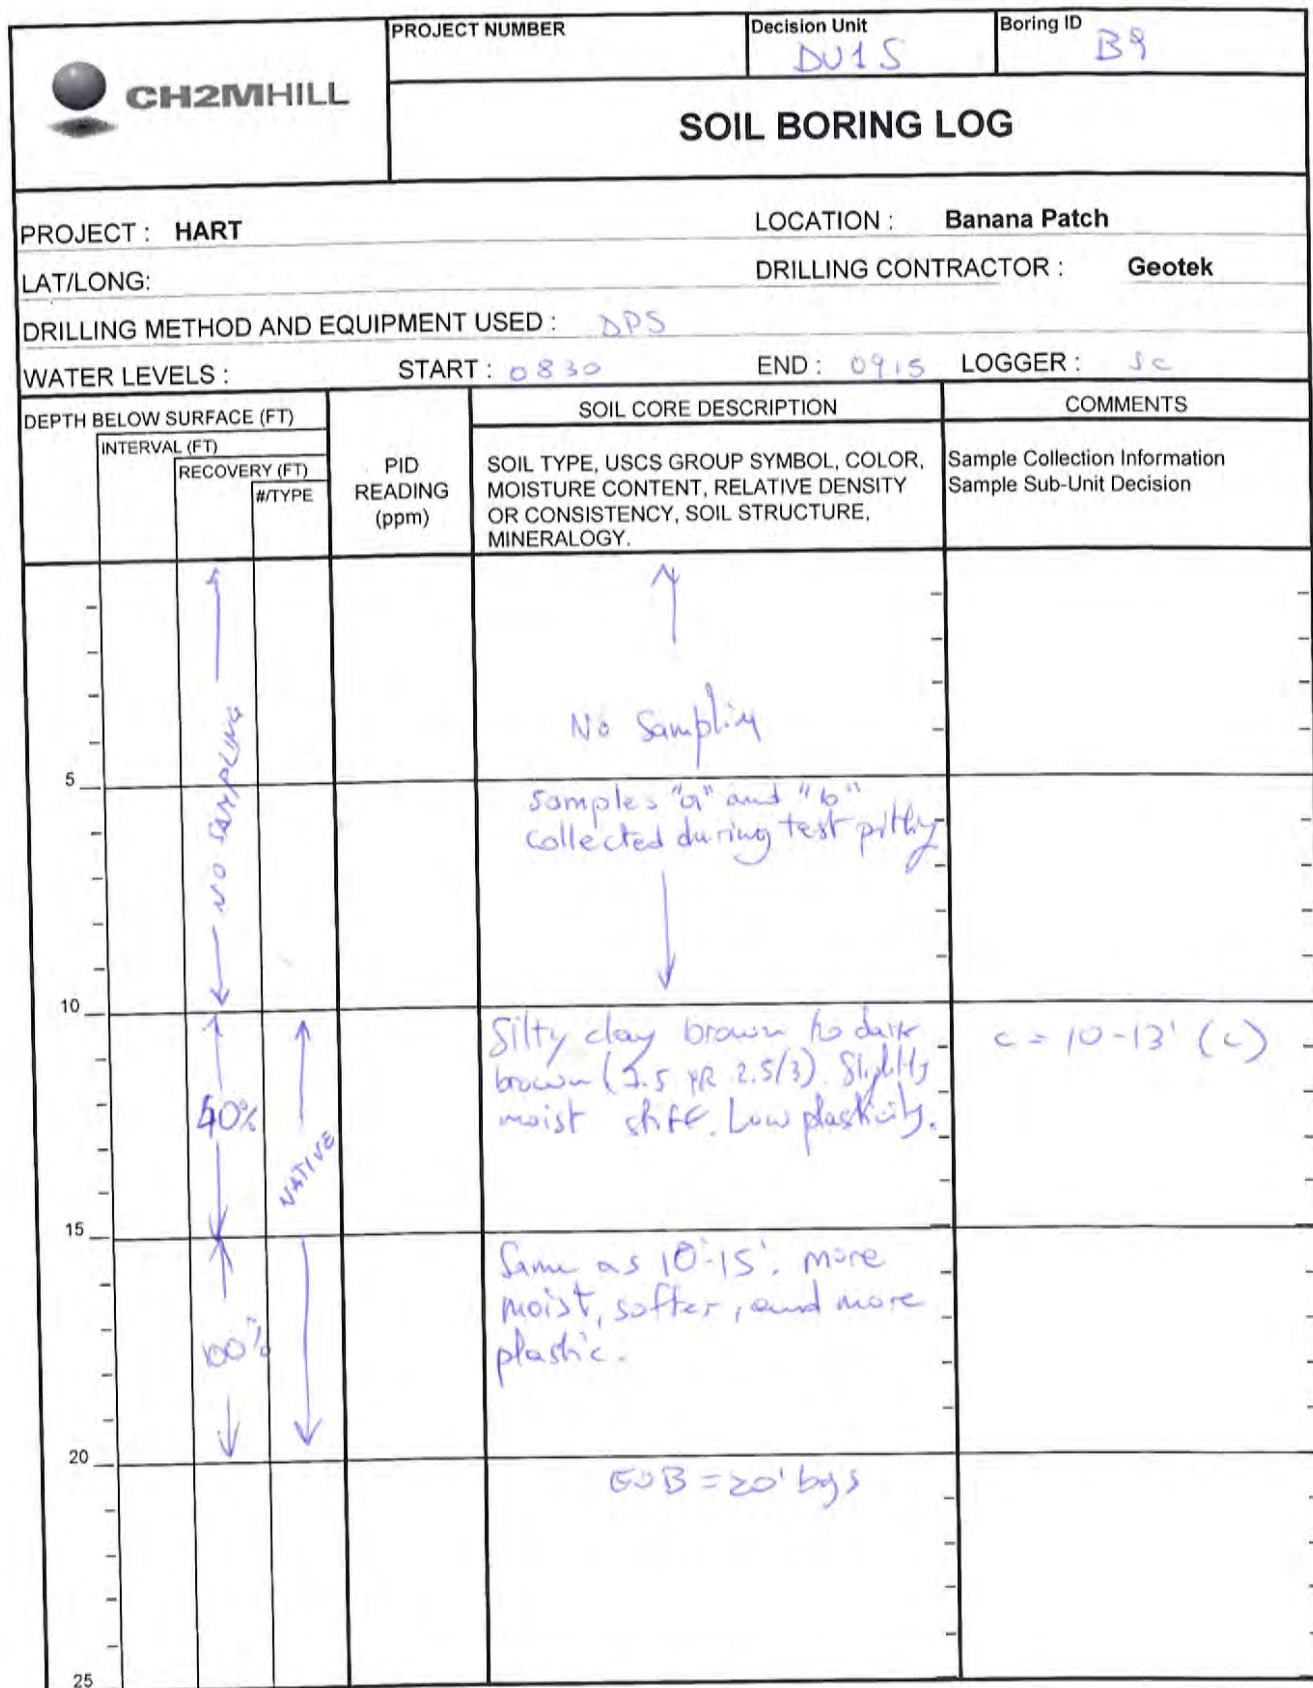 CH2MHILL
PROJECT NUMBER
Decision Unit
DU15
Boring ID
B9
SOIL BORING LOG
PROJECT : HART
LOCATION : Banana Patch
LAT/LONG:
DRILLING CONTRACTOR : Geotek
DRILLING METHOD AND EQUIPMENT USED : DPS
WATER LEVELS : START : 0830 END : 0915 LOGGER : SC
DEPTH BELOW SURFACE (FT)
INTERVAL (FT)
RECOVERY (FT)
#/TYPE
PID
READING
(ppm)
SOIL CORE DESCRIPTION
SOIL TYPE, USCS GROUP SYMBOL, COLOR,
MOISTURE CONTENT, RELATIVE DENSITY
OR CONSISTENCY, SOIL STRUCTURE,
MINERALOGY.
COMMENTS
Sample Collection Information
Sample Sub-Unit Decision
NO SAMPLING
No Sampling
5
samples "a" and "b"
collected during test pitting
10
Silty clay brown to dark
brown (7.5 YR 2.5/3). Slightly
moist stiff. Low plasticity.
c = 10-13' (c)
40%
NATIVE
15
Same as 10'-15'. more
moist, softer, and more
plastic.
100%
20
EOB = 20' bgs
25